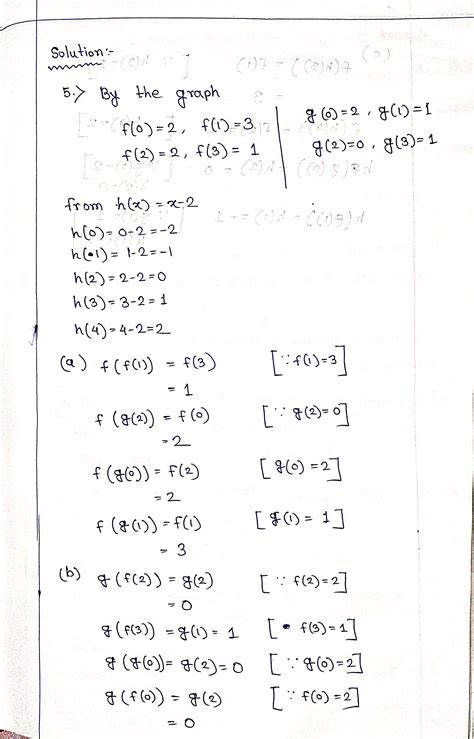 Solution:-
5.> By the graph
f(0)=2, f(1)=3
f(2)=2, f(3)=1
g(0)=2, g(1)=1
g(2)=0, g(3)=1
from h(x)=x-2
h(0)=0-2=-2
h(1)=1-2=-1
h(2)=2-2=0
h(3)=3-2=1
h(4)=4-2=2
(a) f(f(1)) = f(3) [∵ f(1)=3]
= 1
f(g(2)) = f(0) [∵ g(2)=0]
=2
f(g(0)) = f(2) [g(0)=2]
=2
f(g(1)) = f(1) [g(1)=1]
= 3
(b) g(f(2)) = g(2) [∵ f(2)=2]
= 0
g(f(3)) = g(1) = 1 [• f(3)=1]
g(g(0)) = g(2)=0 [∵ g(0)=2]
g(f(0)) = g(2) [∵ f(0)=2]
= 0